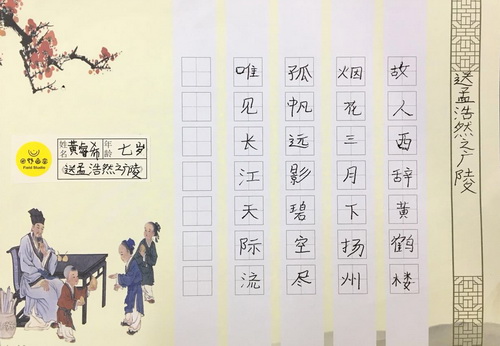 送孟浩然之广陵
故人西辞黄鹤楼
烟花三月下扬州
孤帆远影碧空尽
唯见长江天际流
姓名 黄睿希 年龄 七岁
送孟浩然之广陵
Field Studio